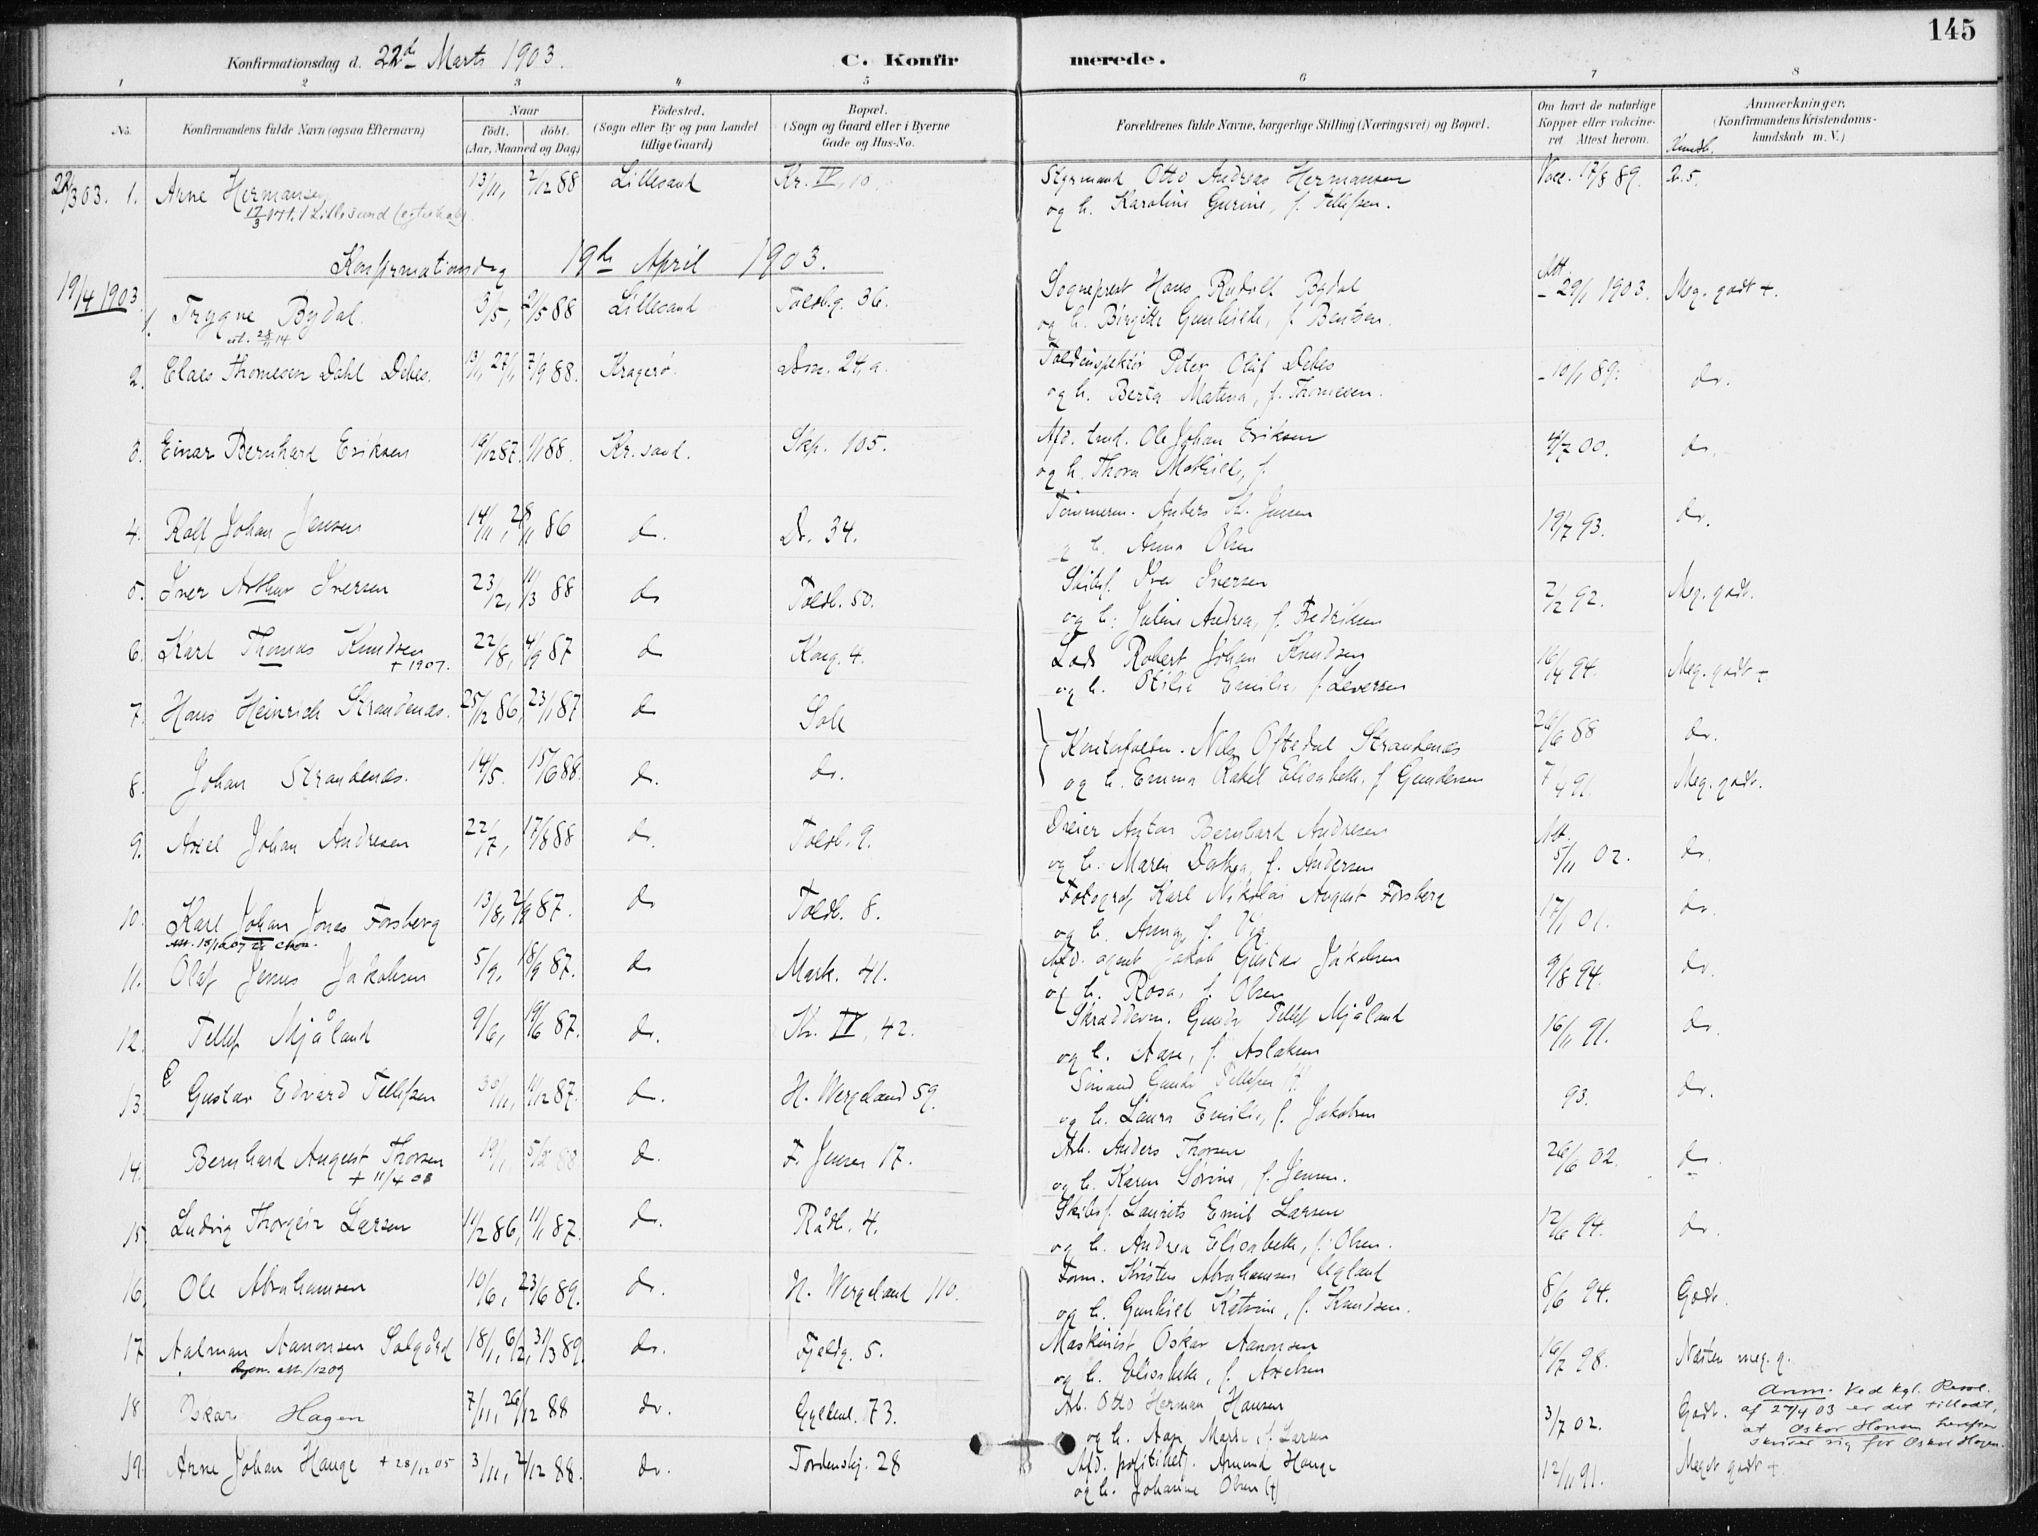 145
Konfirmationsdag d. 22d Marts 1903. C. Konfirmerede.
1 2 3 4 5 6 7 8
No. Konfirmandens fulde Navn (ogsaa Efternavn) Naar født. døbt. (Aar, Maaned og Dag) Fødested. (Sogn eller By og paa Landet tillige Gaard) Bopæl. (Sogn og Gaard eller i Byerne Gade og Hus-No. Forældrenes fulde Navne, borgerlige Stilling (Næringsvei) og Bopæl. Om havt de naturlige Kopper eller vakcineret. Attest herom. Anmærkninger. (Konfirmandens Kristendomskundskab m. V.)
22/3 03. 1. Arne Hermansen 13/11, 2/12 88 Lillesand Kr. IV, 10. Styrmand Otto Andreas Hermansen Vacc. 17/8 89. 2.5.
og h. Karoline Gurine, f. Tellefsen.
Konfirmationsdag 19de April 1903.
19/4 1903.
1. Trygve Bydal 3/5, 88 Lillesand Toldbg. 36. Sogneprest Hans Rudolf Bydal Att. 29/1 1903. Meg. godt +.
og h. Birgitte Gunhilde, f. Bentsen.
2. Claes Thomesen Dahl Debes. 7/9 88. Kragerø. 24.a. Toldinspektør Peter Olaf Debes 10/1 89. do.
og h. Berta Matena, f. Thomesen.
3. Einar Bernhard Eriksen 19/12 87. 1/1 88. Kr.sand. Skp. 105. Afd. Ole Johan Eriksen 4/7 00. do.
og h. Thora Mathilde, f.
4. Ralf Johan Jensen 14/11, 28/11 86 do. Do. 34. Tømmerm. Anders Jensen 19/7 93. do.
og h. Anna Olsen
5. Iver Arthur Iversen 23/12, 11/3 88 do Toldb. 50. Skibsf. Iver Iversen 2/2 92. Meg. godt.
og h. Juline Andrea, f. Fredriksen
6. Karl Thomas Knudsen 22/8, 4/9 87 do Kong. 4. Lods Robert Johan Knudsen 16/4 94. Meg. godt +
+ 1907. og h. Otilie Emilie, f. Seversen
7. Hans Heinrich Strandenæs. 25/12 86, 23/1 87 do Sole Nils Oftedal Strandenæs 26/6 88 do.
8. Johan Strandenæs. 14/5. 15/6 88. do. do. og h. Emma Rakel Elisabeth, f. Gundersen 7/4 91. Meg. godt.
9. Axel Johan Andresen 22/7, 17/8 88 do. Toldb. 9. Dreier Anton Bernhard Andresen Att. 5/11 02. do.
og h. Maren f. Andersen
10. Karl Johan Jonas Forsberg 13/8, 2/9 87. do Toldb. 8. Fotograf Karl Nikolai August Forsberg 17/1 01. do.
og h. Anna, f.
11. Olaf Jenus Jakobsen 5/9, 18/9 87. do Mark. 41. Afd. agent Jakob Gustav Jakobsen 9/8 94. do.
og h. Rosa, f. Olsen
12. Tellef Mjåland 9/6, 19/6 87. do. Kr. IV, 42. Skræddderm. Gunder Tellef Mjåland 16/11 91. do.
og h. Aase, f. Aslaksen
13. Gustav Edvard Tellefsen 30/11, 11/12 87. do. H. Wergeland 59. Sømand Gunder Tellefsen 93. do.
og h. Laura Emilie, f. Jakobsen
14. Bernhard August Thorsen 19/1, 88 do. F. Jensen 17. Arb. Anders Thorsen 26/6 02. do.
+ 11/4 08 og h. Karen Sørine, f. Jensen.
15. Ludvig Thorgeir Larsen 11/12 86, 11/1 87. do. Rådh. 4. Skibsf. Laurits Emil Larsen 12/6 94. do.
og h. Andrea Elisabeth, f. Olsen.
16. Ole Abrahamsen 10/6, 23/6 89. do. H. Wergeland 110. Form. Kristen Abrahamsen Ugland 8/6 94. Godt.
og h. Gunhild Katrine, f. Knudsen.
17. Aalman Aanonsen Solgård 31/3 89. do. Fjeldg. 5. Maskinist Oskar Aanonsen 16/7 98. Næsten meg. g.
og h. Elisabeth, f. Axelsen
18. Oskar Hagen 7/11, 26/12 88 do. Gyldenl. 73. Arb. Otto Herman Hansen 3/7 02. Godt. Anm. Ved kgl. Resol. af 27/4 03 er det tilladt, at Oskar Hansen herefter skriver sig for Oskar Hagen.
og h. Marie, f. Larsen
19. Arne Johan Hauge + 28/12 05 3/11, 2/12 88. do. Tordenskj. 28 Afd. politibetj. Amund Hauge 12/11 91. Meget godt +
og h. Johanne Olsen (+)